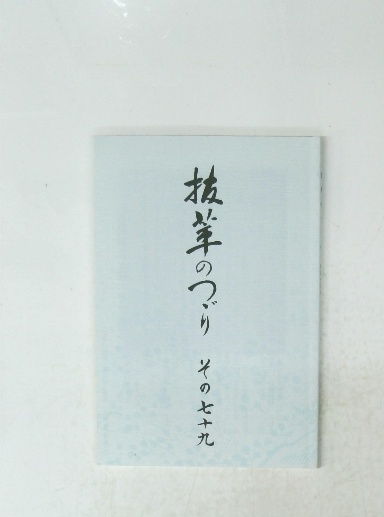 抜萃のつゞり その七十九